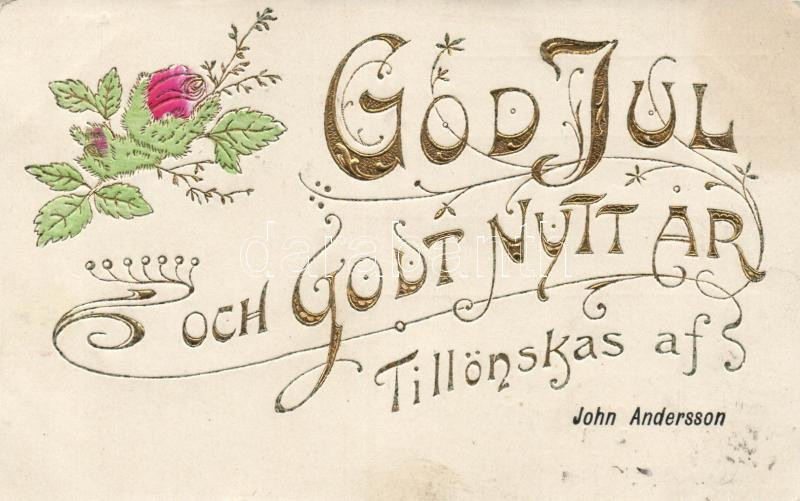 GOD JUL
OCH GODT NYTT ÅR
Tillönskas af
John Andersson
darabanth